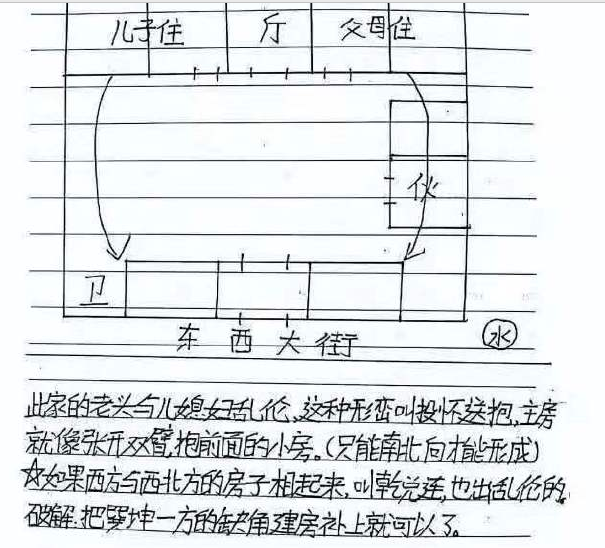 儿子住 厅 父母住
伙
卫
东西大街 水
此家的老头与儿媳妇乱伦、这种形峦叫投怀送抱,主房
就像张开双臂,抱前面的小房。(只能南北向才能形成)
☆如果西方与西北方的房子相起来,叫乾兑连,也出乱伦的。
破解:把巽坤一方的缺角建房补上就可以了。